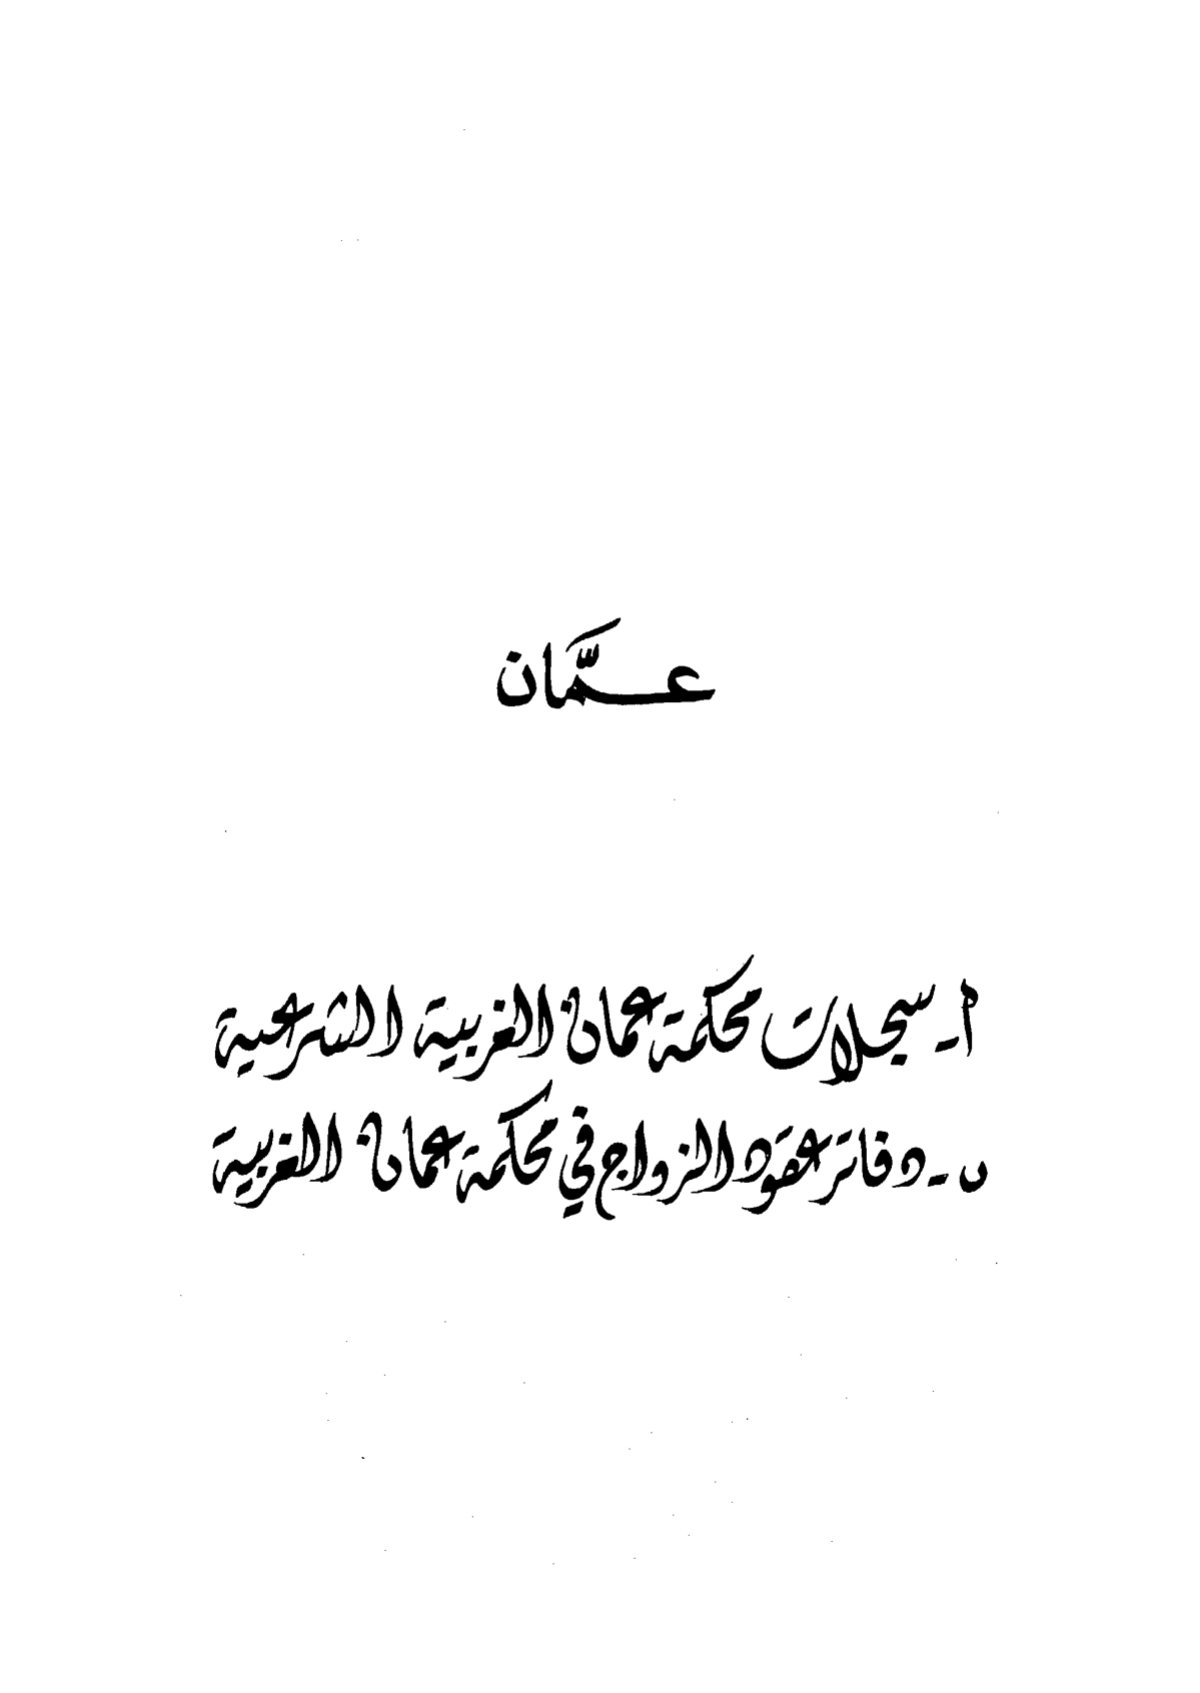 عمَّان
أ - سجلات محكمة عمان الغربية الشرعية
ب - دفاتر عقود الزواج في محكمة عمان الغربية